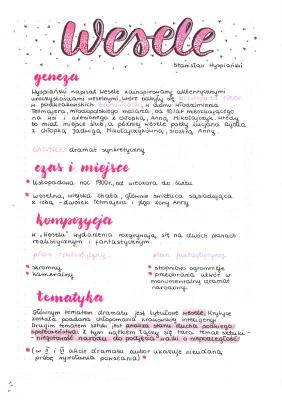 Wesele
Stanisław Wyspiański
geneza
Wyspiański napisał Wesele zainspirowany autentycznymi
uroczystościami weselnymi, które odbyły się
w podkrakowskich Bronowicach, w domu Włodzimierza
Tetmajera, młodopolskiego malarza, od 10 lat mieszkającego
na wsi i ożenionego z chłopką, Anną Mikołajczyk. Wtedy
to miał miejsce ślub, a później wesele poety Lucjana Rydla
z chłopką Jadwigą Mikołajczykówną, siostrą Anny.
GATUNEK: dramat syntetyczny
czas i miejsce
listopadowa noc 1900r., od wieczora do świtu
weselna, wiejska chata, głównie świetlica sąsiadująca
z izbą - dworek Tetmajera i jego żony Anny
kompozycja
W „Weselu" wydarzenia rozgrywają się na dwóch planach
realistycznym i fantastycznym.
plan realistyczny
plan fantastyczny
skromny
kameralny
stopniowo ogromnieje
przeobraża utwór w
monumentalny dramat
narodowy
tematyka
Głównym tematem dramatu jest tytułowe wesele. Krytyce
została poddana chłopomania krakowskiej inteligencji.
Drugim tematem sztuki jest analiza stanu ducha polskiego
społeczeństwa. Z tym wątkiem łączy się teza sztuki -
- niegotowość narodu do podjęcia walki o niepodległość.
(w II i III akcie dramatu autor ukazuje nieudaną
próbę wywołania powstania)